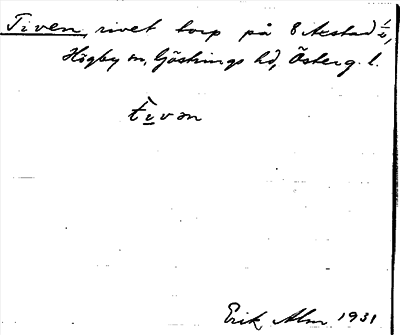 Tiven, rivet torp på 8 Axstad ½,
Högby sn, Göstrings hd, Österg. l.
tìvən
Erik Alm 1931